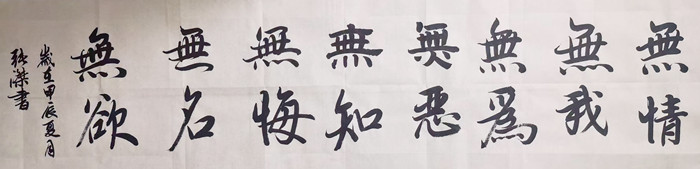 無情
無我
無爲
無惡
無知
無悔
無名
無欲
歲在甲辰夏月
張傑書